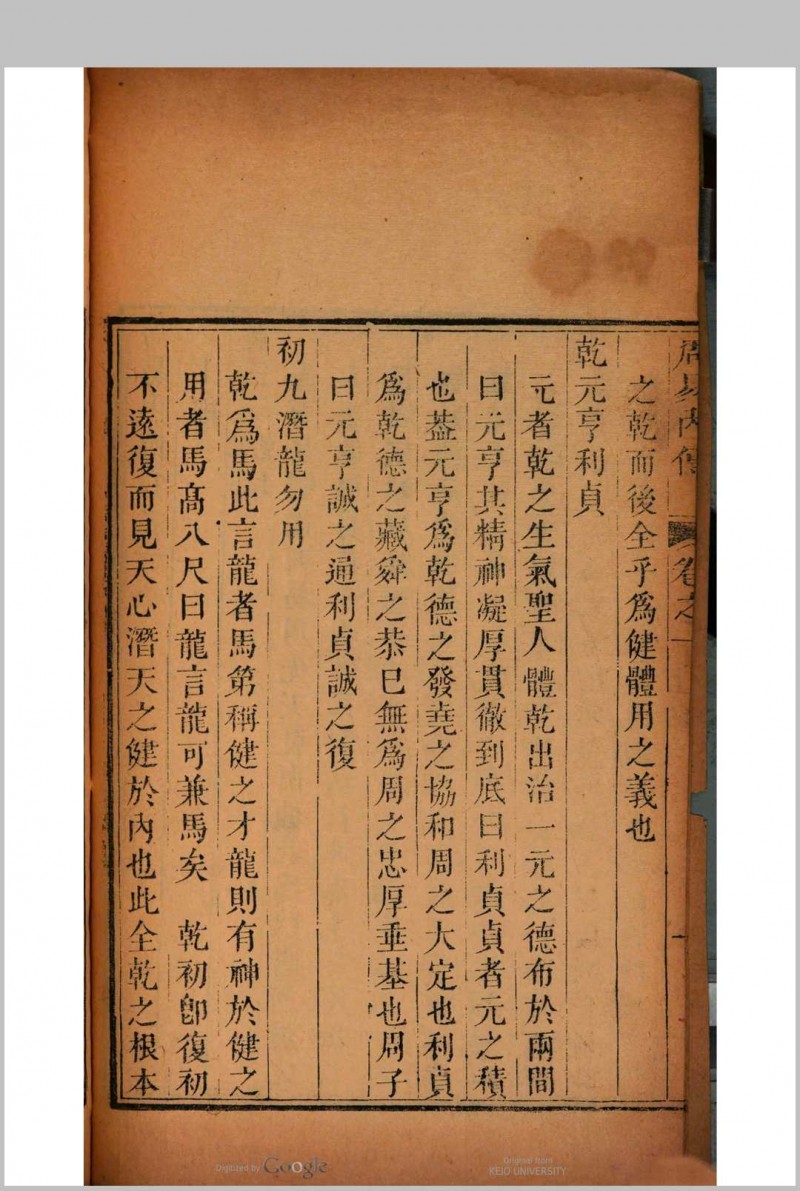 周易內傳 卷之一
之乾而後全乎爲健體用之義也
乾元亨利貞
元者乾之生氣聖人體乾出治一元之德布於兩間
曰元亨其精神凝厚貫徹到底曰利貞貞者元之積
也葢元亨爲乾德之發堯之協和周之大定也利貞
爲乾德之藏舜之恭已無爲周之忠厚垂基也周子
曰元亨誠之通利貞誠之復
初九潛龍勿用
乾爲馬此言龍者馬第稱健之才龍則有神於健之
用者馬高八尺曰龍言龍可兼馬矣 乾初卽復初
不遠復而見天心潛天之健於內也此全乾之根本
Digitized by Google
Original from
KEIO UNIVERSITY